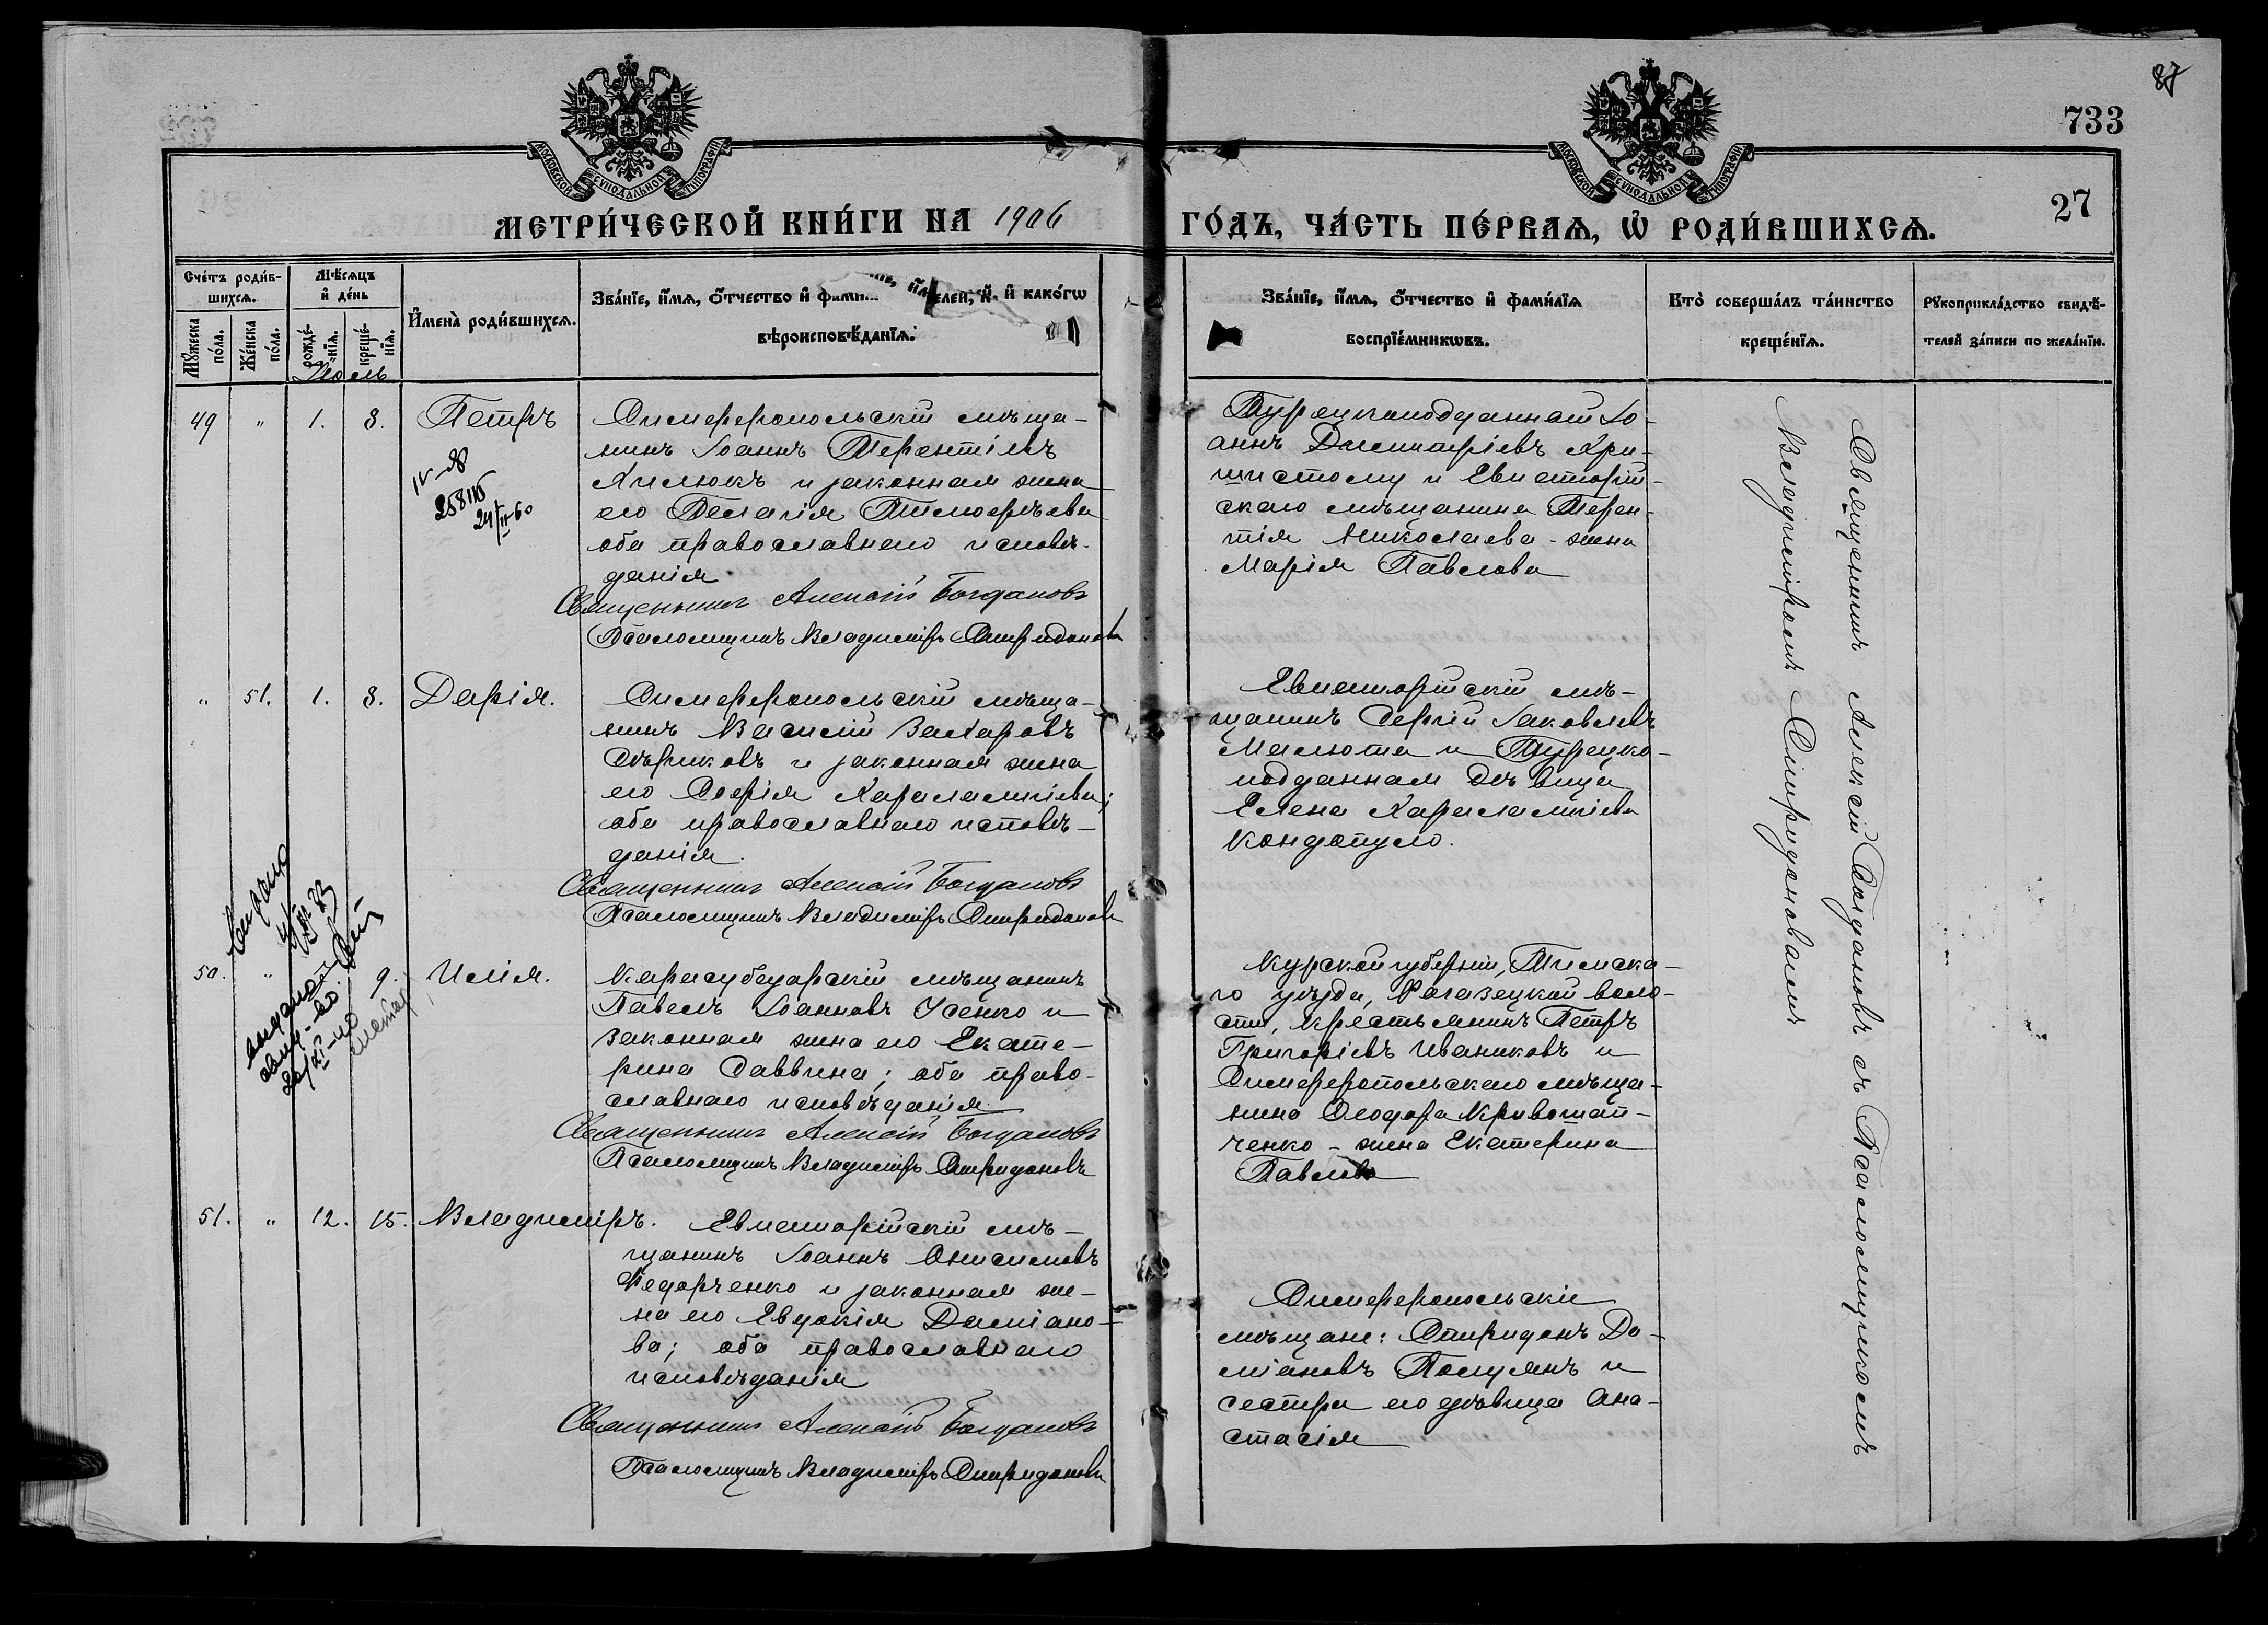 87
733
27
МОСКОВСКОЙ СѴНОДАЛЬНОЙ ТИПОГРАФІИ
МОСКОВСКОЙ СѴНОДАЛЬНОЙ ТИПОГРАФІИ
МЕТРИ́ЧЕСКОЙ КНИ́ГИ НА 1906
ГО́ДЪ, ЧА́СТЬ ПЕ́РВАѦ, Ѽ РОДИ́ВШИХСѦ.
Сче́тъ роди́в-
шихсѧ.
Мѣ́сѧцъ
и҆ де́нь
Мꙋ́жеска
по́ла.
Же́нска
по́ла.
рожде́-
нїѧ.
креще́-
нїѧ.
И҆мена̀ роди́вшихсѧ.
Зва́нїе, и҆́мѧ, ѻ҆́тчество и҆
и҆ како́гѡ
вѣроисповѣ́данїѧ.
Зва́нїе, и҆́мѧ, ѻ҆́тчество и҆ фами́лїѧ
воспрїе́мникѡвъ.
Кто̀ соверша́лъ та́инство
креще́нїѧ.
Рꙋкоприкла́дство свидѣ́-
телей за́писи по жела́нїю.
Іюль
49 " 1. 8. Петръ
Симферопольскій мѣща-
нинъ Іоаннъ Терентіевъ
Хилюкъ и законная жена
его Пелагія Тимоѳеева
оба православнаго исповѣ-
данія.
Священникъ Алексій Богдановъ
Псаломщикъ Владиміръ Спиридоновъ
Турецкоподданный Іо-
аннъ Димитріевъ Хри-
стому и Евпаторій-
скаго мѣщанина Терен-
тія Николаева - жена
Марія Павлова
" 51. 1. 8. Дарія.
Симферопольскій мѣща-
нинъ Василій Захаровъ
Сѣриковъ и законная жена
его Софія Харалампіева;
оба православнаго исповѣ-
данія.
Священникъ Алексій Богдановъ
Псаломщикъ Владиміръ Спиридоновъ
Евпаторійскій мѣ-
щанинъ Сергій Іаковлевъ
Малюта и Турецко-
подданная дѣвица
Елена Харалампіева
Кондопуло.
50. " 9. Илія.
Карасубазарскій мѣщанинъ
Павелъ Іоанновъ Усенко и
законная жена его Екате-
рина Саввина; оба право-
славнаго исповѣданія
Священникъ Алексій Богдановъ
Псаломщикъ Владиміръ Спиридоновъ
Курской губерніи, Тимска-
го уѣзда, Рогозецкой воло-
сти, крестьянинъ Петръ
Григоріевъ Иваниковъ и
Симферопольскаго мѣща-
нина Ѳеодора Кривошап-
ченко - жена Екатерина
Павлова
51. " 12. 15. Владиміръ.
Евпаторійскій мѣ-
щанинъ Іоаннъ Онисимовъ
Федорченко и законная же-
на его Евдокія Даміано-
ва; оба православнаго
исповѣданія
Священникъ Алексій Богдановъ
Псаломщикъ Владиміръ Спиридоновъ
Симферопольскіе
мѣщане: Спиридонъ Да-
міановъ Полуянъ и
сестра его дѣвица Ана-
стасія
Священникъ Алексій Богдановъ съ Псаломщикомъ
Владиміромъ Спиридоновымъ